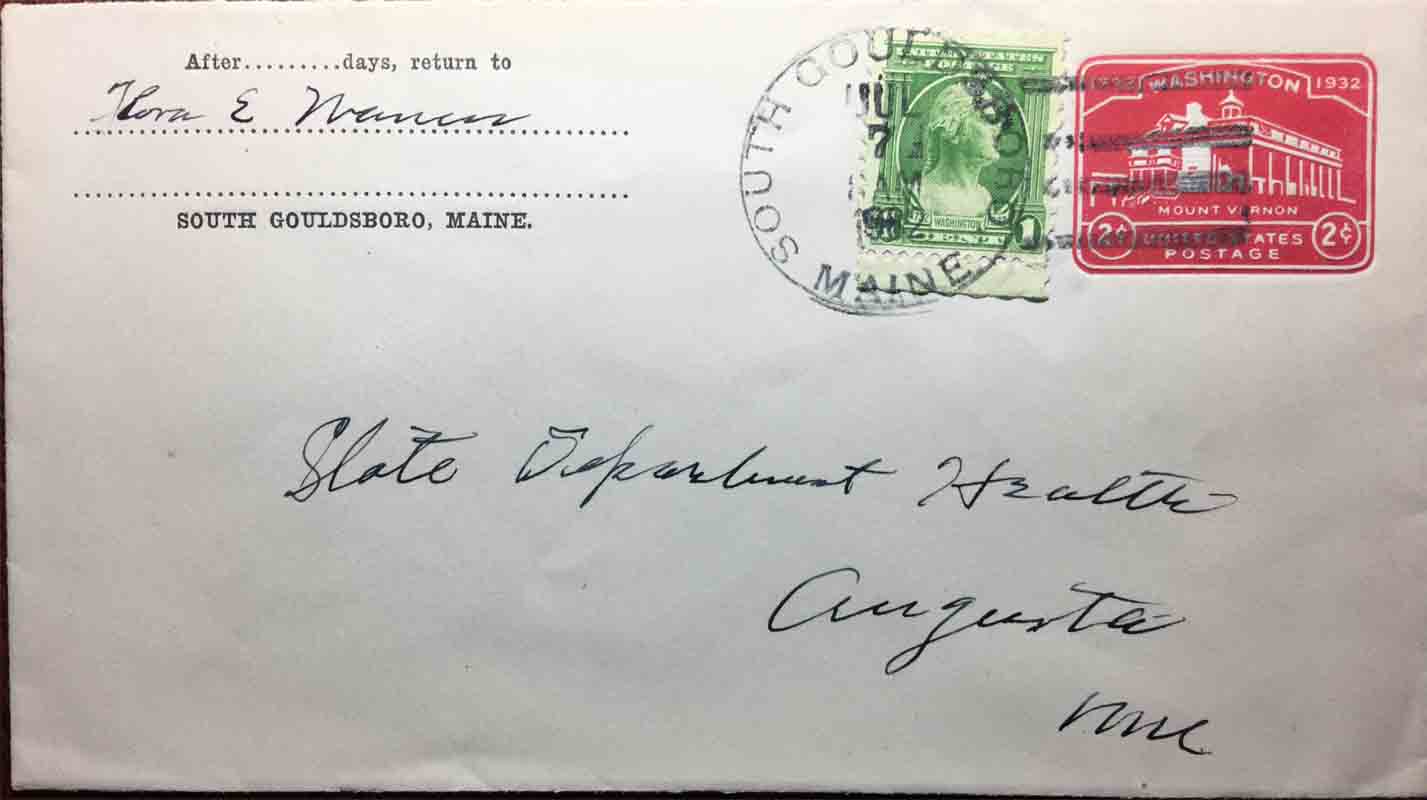 After.........days, return to
Flora E Warren
SOUTH GOULDSBORO, MAINE.
SOUTH GOULDSBORO
JUL
7
MAINE
WASHINGTON
1
1932 WASHINGTON 1932
MOUNT VERNON
2¢ UNITED STATES 2¢
POSTAGE
State Department Health
Augusta
Me